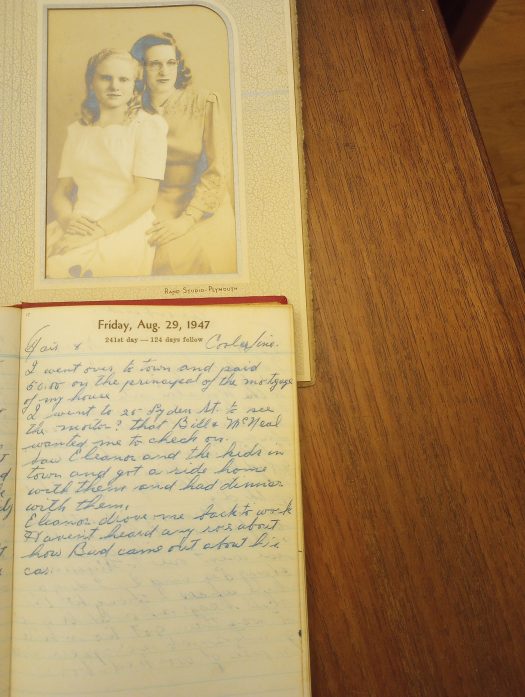 RAND STUDIO-PLYMOUTH
Friday, Aug. 29, 1947
241st day — 124 days follow
Fair & Cooler/fine.
I went over to town and paid
50.00 on the principal of the mortgage
of my house
I went to 20 St. to see
the motor? that Bill McNeal
wanted me to check on.
Saw Eleanor and the kids in
town and got a ride home
with them and had dinner
with them.
Eleanor drove me back to work
Havent heard any about
how Bud came out about his
car.